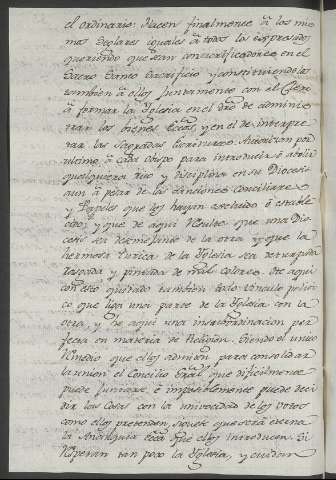 el ordinario. Hacen finalmente à los mis
mos Seglares iguales à todos los expresados
queriendo que sean consacrificadores en el
Sacro Santo Sacrificio y constituiendoles
tambien à ellos juntamente con el Clero
à formar la Yglesia en el dro de adminis
trar los bienes Eccos, y en el de interpre
trar las Sagradas Escrituras. Autorizan por
ultimo à cada Obispo para introducir ò abolir
qualquiera rito y disciplina en su Diocesis
aun à pesar de las sanciones Conciliares
y Papales que los hayan excluido ò estable
cido; y que de aqui resulte que una Dio
cesis sea desemejante de la otra y que la
hermosa tunica de la Yglesia sea
rasgada y pintada de mil colores. He aqui
con esto quitado tambien todo vinculo
co que liga una parte de la Yglesia con la
otra, y he aqui una insubordinacion per
fecta en materia de Religion. Siendo el unico
remedio que ellos admiten para consolidar
la union el Concilio Gral que dificilmente
puede juntarse è imposiblemente puede deci
dir las Cosas con la universidad de los Votos
como ellos pretenden, siguese que será eterna
la Anarquia Ecca que ellos introducen. Si
tan poco la Yglesia, y cuidan